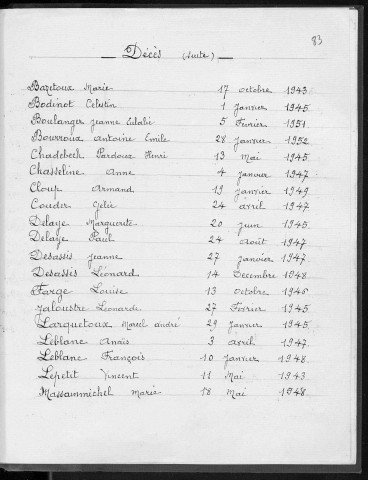 83
Décès (suite)
Bazetoux Marie 17 octobre 1943
Bodinot Célestin 1 janvier 1945
Boulanger Jeanne Eulalie 5 Février 1951
Bourroux Antoine Emile 28 janvier 1952
Chadebech Pardoux Henri 13 Mai 1945
Chasseline Anne 4 janvier 1947
Cloup Armand 19 janvier 1949
Couder 24 avril 1947
Delaye Marguerite 20 juin 1945
Delaye Paul 24 août 1947
Desassis Jeanne 27 janvier 1947
Desassis Léonard 14 Décembre 1948
Farge Louise 13 octobre 1946
Jaloustre Léonarde 27 Février 1945
Larquetoux Marcel andré 29 janvier 1945
Leblanc Anaïs 3 avril 1947
Leblanc François 10 janvier 1948
Lepetit Vincent 11 Mai 1943
Massammichel Marie 18 Mai 1948